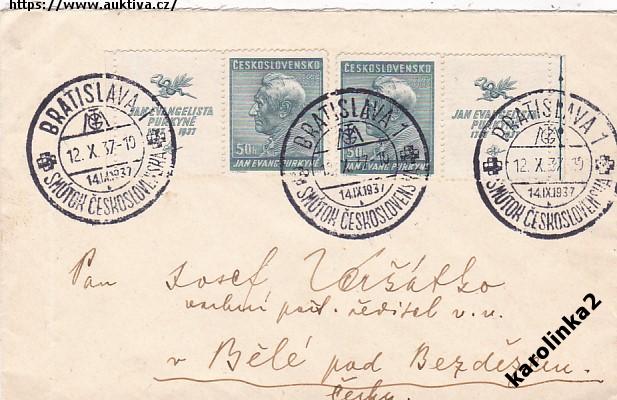 https://www.auktiva.cz/
JAN EVANGELISTA
PURKYNĚ
1937
ČESKOSLOVENSKO
50h
JAN EVANG. PURKYNĚ
ČESKOSLOVENSKO
50h
JAN EVANG. PURKYNĚ
JAN EVANGELISTA
1937
BRATISLAVA 1
12. X. 37-10
14.IX.1937
SMÚTOK ČESKOSLOVENSKA
BRATISLAVA 1
14.IX.1937
SMÚTOK ČESKOSLOVENSKA
BRATISLAVA 1
12. X. 37-10
14.IX.1937
SMÚTOK ČESKOSLOVENSKA
Pan Josef Veršátko
ředitel v. v.
v Bělé pod Bezdězem.
Čechy.
karolinka2